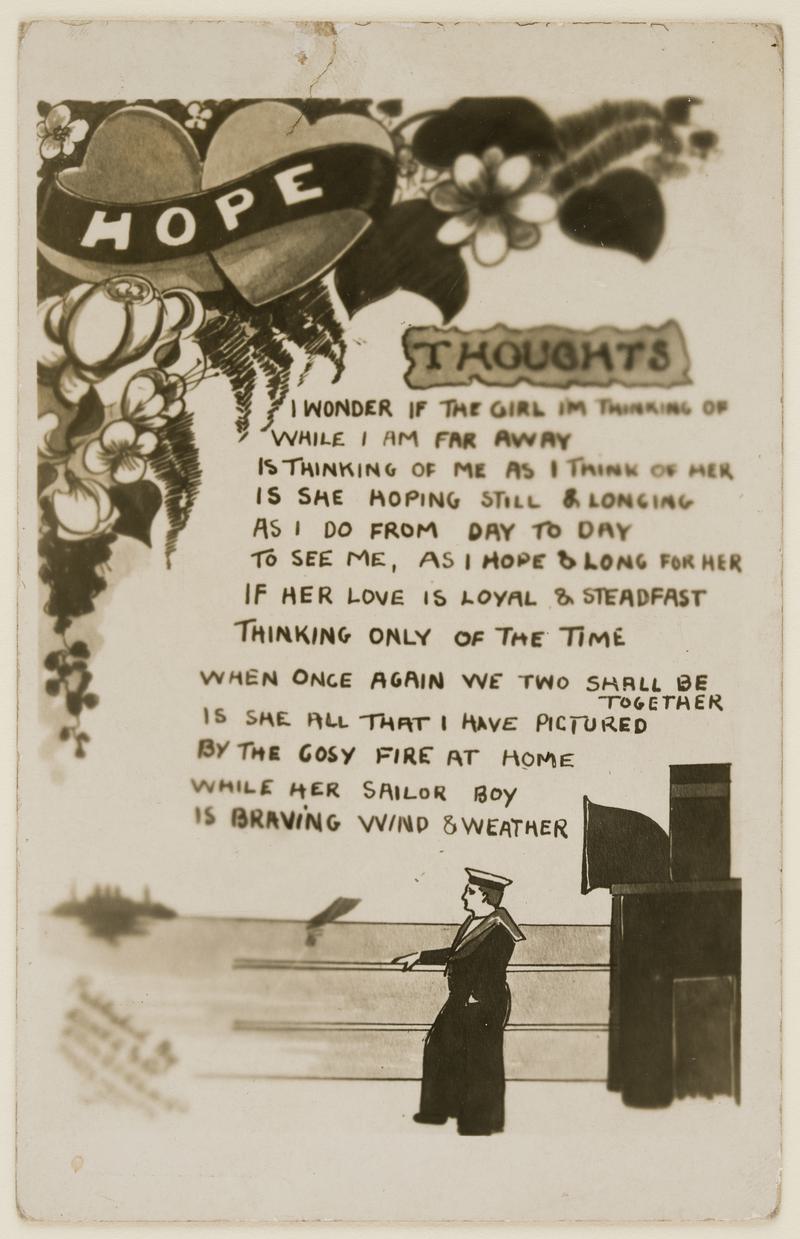 HOPE
THOUGHTS
I WONDER IF THE GIRL IM THINKING OF
WHILE I AM FAR AWAY
IS THINKING OF ME AS I THINK OF HER
IS SHE HOPING STILL & LONGING
AS I DO FROM DAY TO DAY
TO SEE ME, AS I HOPE & LONG FOR HER
IF HER LOVE IS LOYAL & STEADFAST
THINKING ONLY OF THE TIME
WHEN ONCE AGAIN WE TWO SHALL BE
TOGETHER
IS SHE ALL THAT I HAVE PICTURED
BY THE COSY FIRE AT HOME
WHILE HER SAILOR BOY
IS BRAVING WIND & WEATHER
Published By